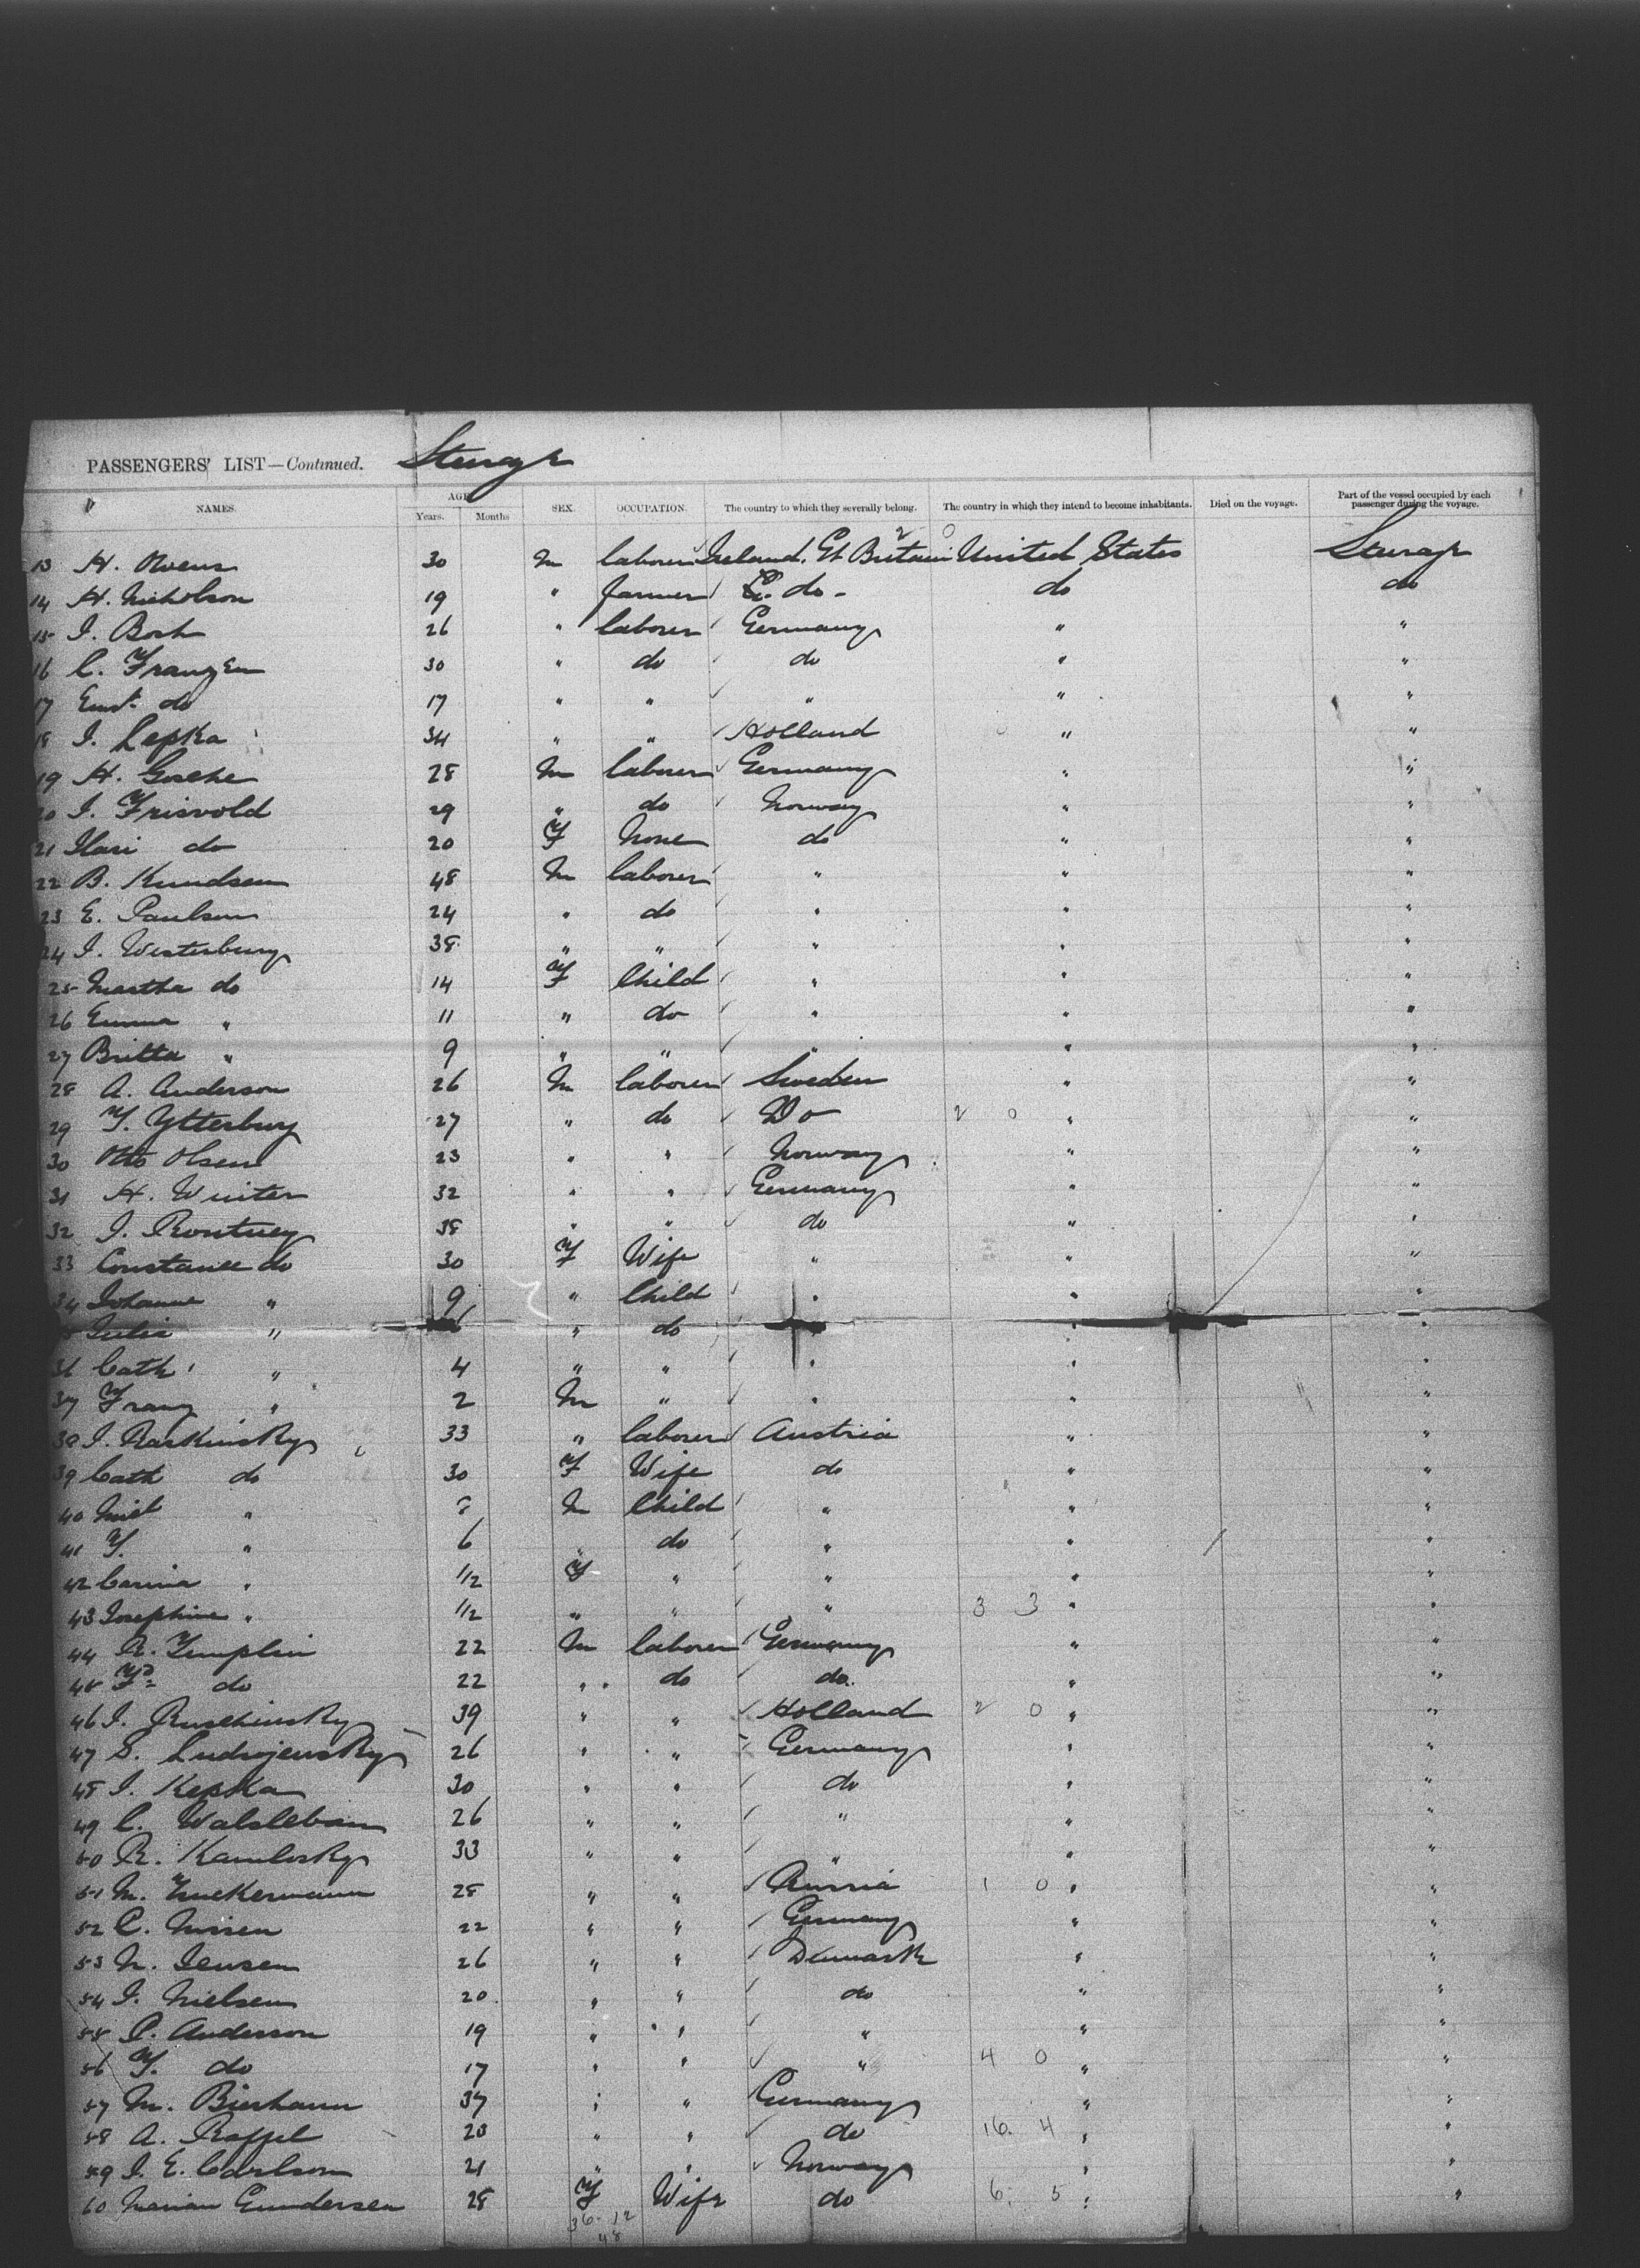 PASSENGERS' LIST—Continued. Steerage
NAMES. AGE Years. Months SEX. OCCUPATION. The country to which they severally belong. The country in which they intend to become inhabitants. Died on the voyage. Part of the vessel occupied by each passenger during the voyage.
2 0
13 H. Owens 30 M laborer Ireland. Gt Britain United States Steerage
14 H. Nicholson 19 " farmer E. do - do do
15 I. Bosh 26 " laborer Germany " "
16 C. Franzen 30 " do do " "
17 Ernst do 17 " " " " "
18 I. Lepka 34 " " Holland " "
19 H. Goethe 28 M laborer Germany " "
20 I. Frisvold 29 " do Norway " "
21 do 20 F None do " "
22 B. Knudsen 48 M laborer " " "
23 E. Paulson 24 " do " " "
24 I. Westerburg 38 " " " " "
25 Martha do 14 F Child " " "
26 Emma " 11 " do " " "
27 Britta " 9 " " " " "
28 A. Anderson 26 M laborer Sweden " "
29 Y. Ytterburg 27 " do Do 2 0 " "
30 Otto Olsen 23 " " Norway " "
31 H. Winter 32 " " Germany " "
32 I. 38 " " do " "
33 Constance do 30 F Wife " " "
34 Johanne " 9 " Child " " "
35 Julia " 6 " do " "
36 Cath " 4 " " " " "
37 Franz " 2 M " " " "
38 I. Raskinsky 33 " laborer Austria " "
39 Cath do 30 F Wife do " "
40 " M Child " " "
41 F. " 6 " do " " "
42 Carina " 1/2 F " " " "
43 Josephine " 1/2 " " " 3 3 " "
44 R. Templin 22 M laborer Germany " "
45 Fd do 22 " do do. " "
46 I. Ruschinsky 39 " " Holland 2 0 " "
47 S. Ludwjensky 26 " " Germany " "
48 I. Kepka 30 " " do " "
49 C. Walsleben 26 " " " " "
50 R. Kamlosky 33 " " " " "
51 M. Zuckermann 28 " " Russia 1 0 " "
52 C. Nissen 22 " " Germany " "
53 N. Jensen 26 " " Denmark " "
54 I. Nielsen 20 " " do " "
55 P. Anderson 19 " " " " "
56 F. do 17 " " " 4 0 " "
57 M. Bierhann 37 " " Germany " "
58 A. Raffel 23 " " do 16. 4 " "
59 I. E. Carlson 21 " " Norway " "
60 Marian Gundersen 28 F Wife do 6. 5 " "
36 - 12
48